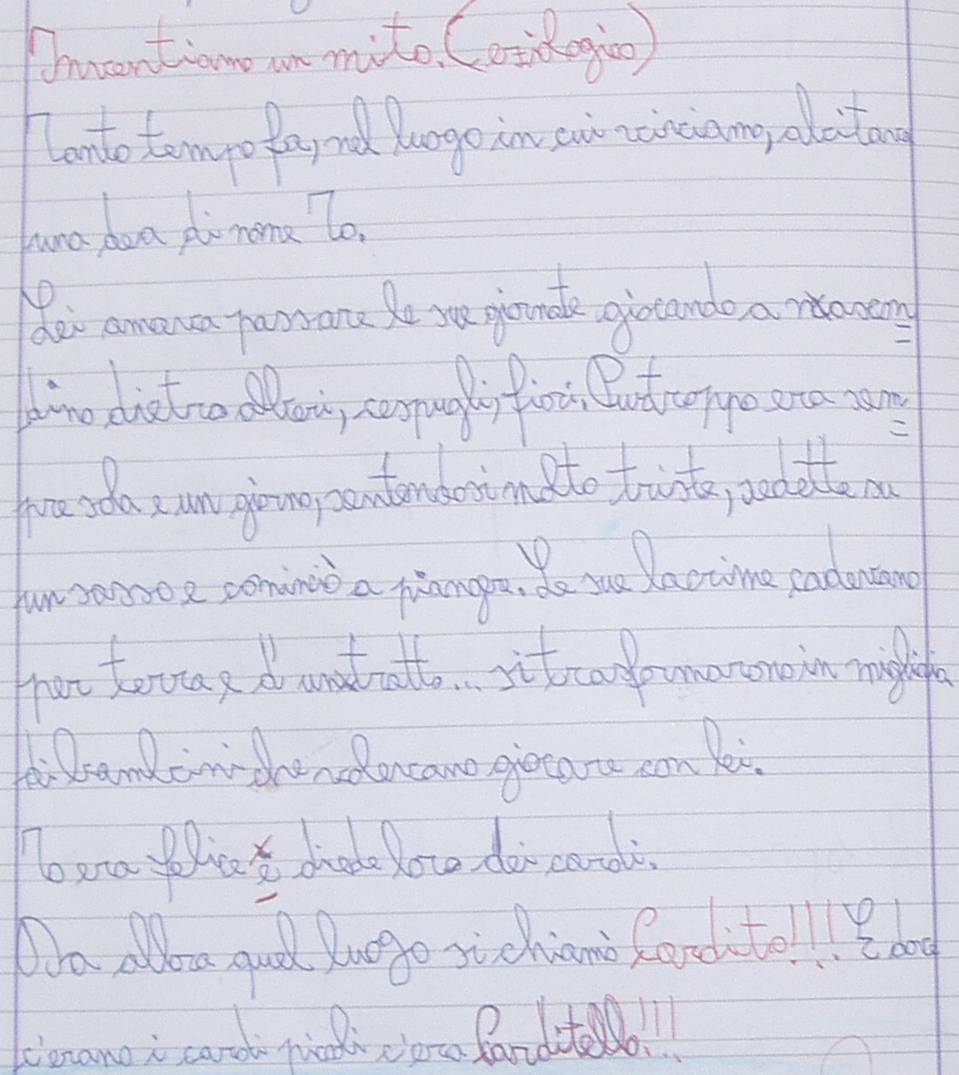 Inventiamo un mito. (eziologico)
Tanto tempo fa, nel luogo in cui viviamo, abitava
una dea di nome To.
Lei amava passare le sue giornate giocando a nascon
dino dietro alberi, cespugli, fiori. Purtroppo era sem
pre sola e un giorno, sentendosi molto triste, sedette su
un sasso e cominciò a piangere. Le sue lacrime cadevano
per terra e d'un tratto... si trasformarono in migliaia
di bambini che volevano giocare con lei.
To era felice e diede loro dei cardi.
Da allora quel luogo si chiamò Cardito!!! E dove
c'erano i cardi piccoli c'era Carditello!!!